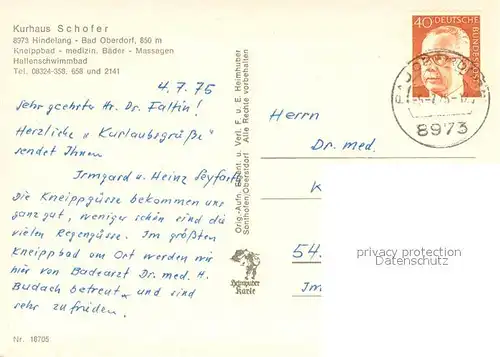 Kurhaus Schofer
8973 Hindelang - Bad Oberdorf, 850 m
Kneippbad - medizin. Bäder - Massagen
Hallenschwimmbad
Tel. 08324-358, 658 und 2141
4.7.75
Sehr geehrter Hr. Dr. Faltin!
Herzliche "Kurlaubsgrüße"
sendet Ihnen
Irmgard u. Heinz Seyfarth
Die Kneippgüsse bekommen uns
ganz gut, weniger schön sind die
vielen Regengüsse. Im größten
Kneippbad am Ort werden wir
hier von Badearzt Dr. med. H.
Budach betreut und sind
sehr zufrieden.
Nr. 18705
Orig.-Aufn. Eigent. u. Verl. F. u. E. Heimhuber
Sonthofen/Oberstdorf Alle Rechte vorbehalten
Heimhuber
Karte
40 DEUTSCHE
BUNDESPOST
8973
Herrn
Dr. med.
K
54.
Im
privacy protection
Datenschutz